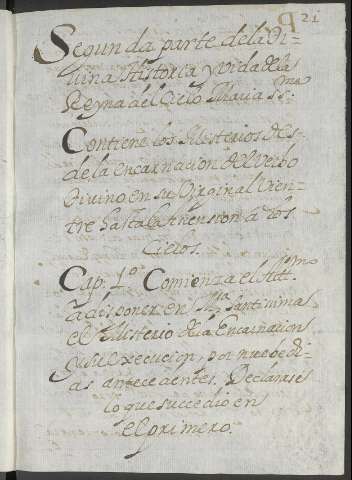 21
Segunda parte de la Di-
uina Historia y vida de la
Reyna del Cielo Maria SSma.
Contiene los Misterios des-
de la encarnacion del Verbo
Divino en su Virginal Vien-
tre hasta la Ahension a los
Cielos.
Cap. 1º. Comienza el Altmo
a disponer en Ma Santissima
el Misterio de la Encarnacion
y su execucion, por nuebe di-
as antecedentes. Declarase
lo que succedio en
el primero.